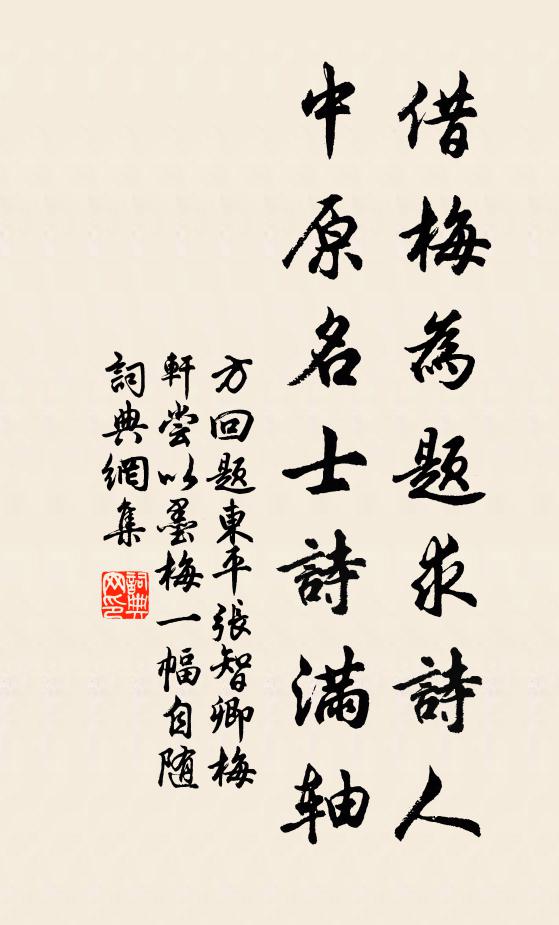 借梅為題求詩人
中原名士詩满轴
方回题東平張智卿梅
軒嘗以墨梅一幅自随
詞典網集
詞典网印